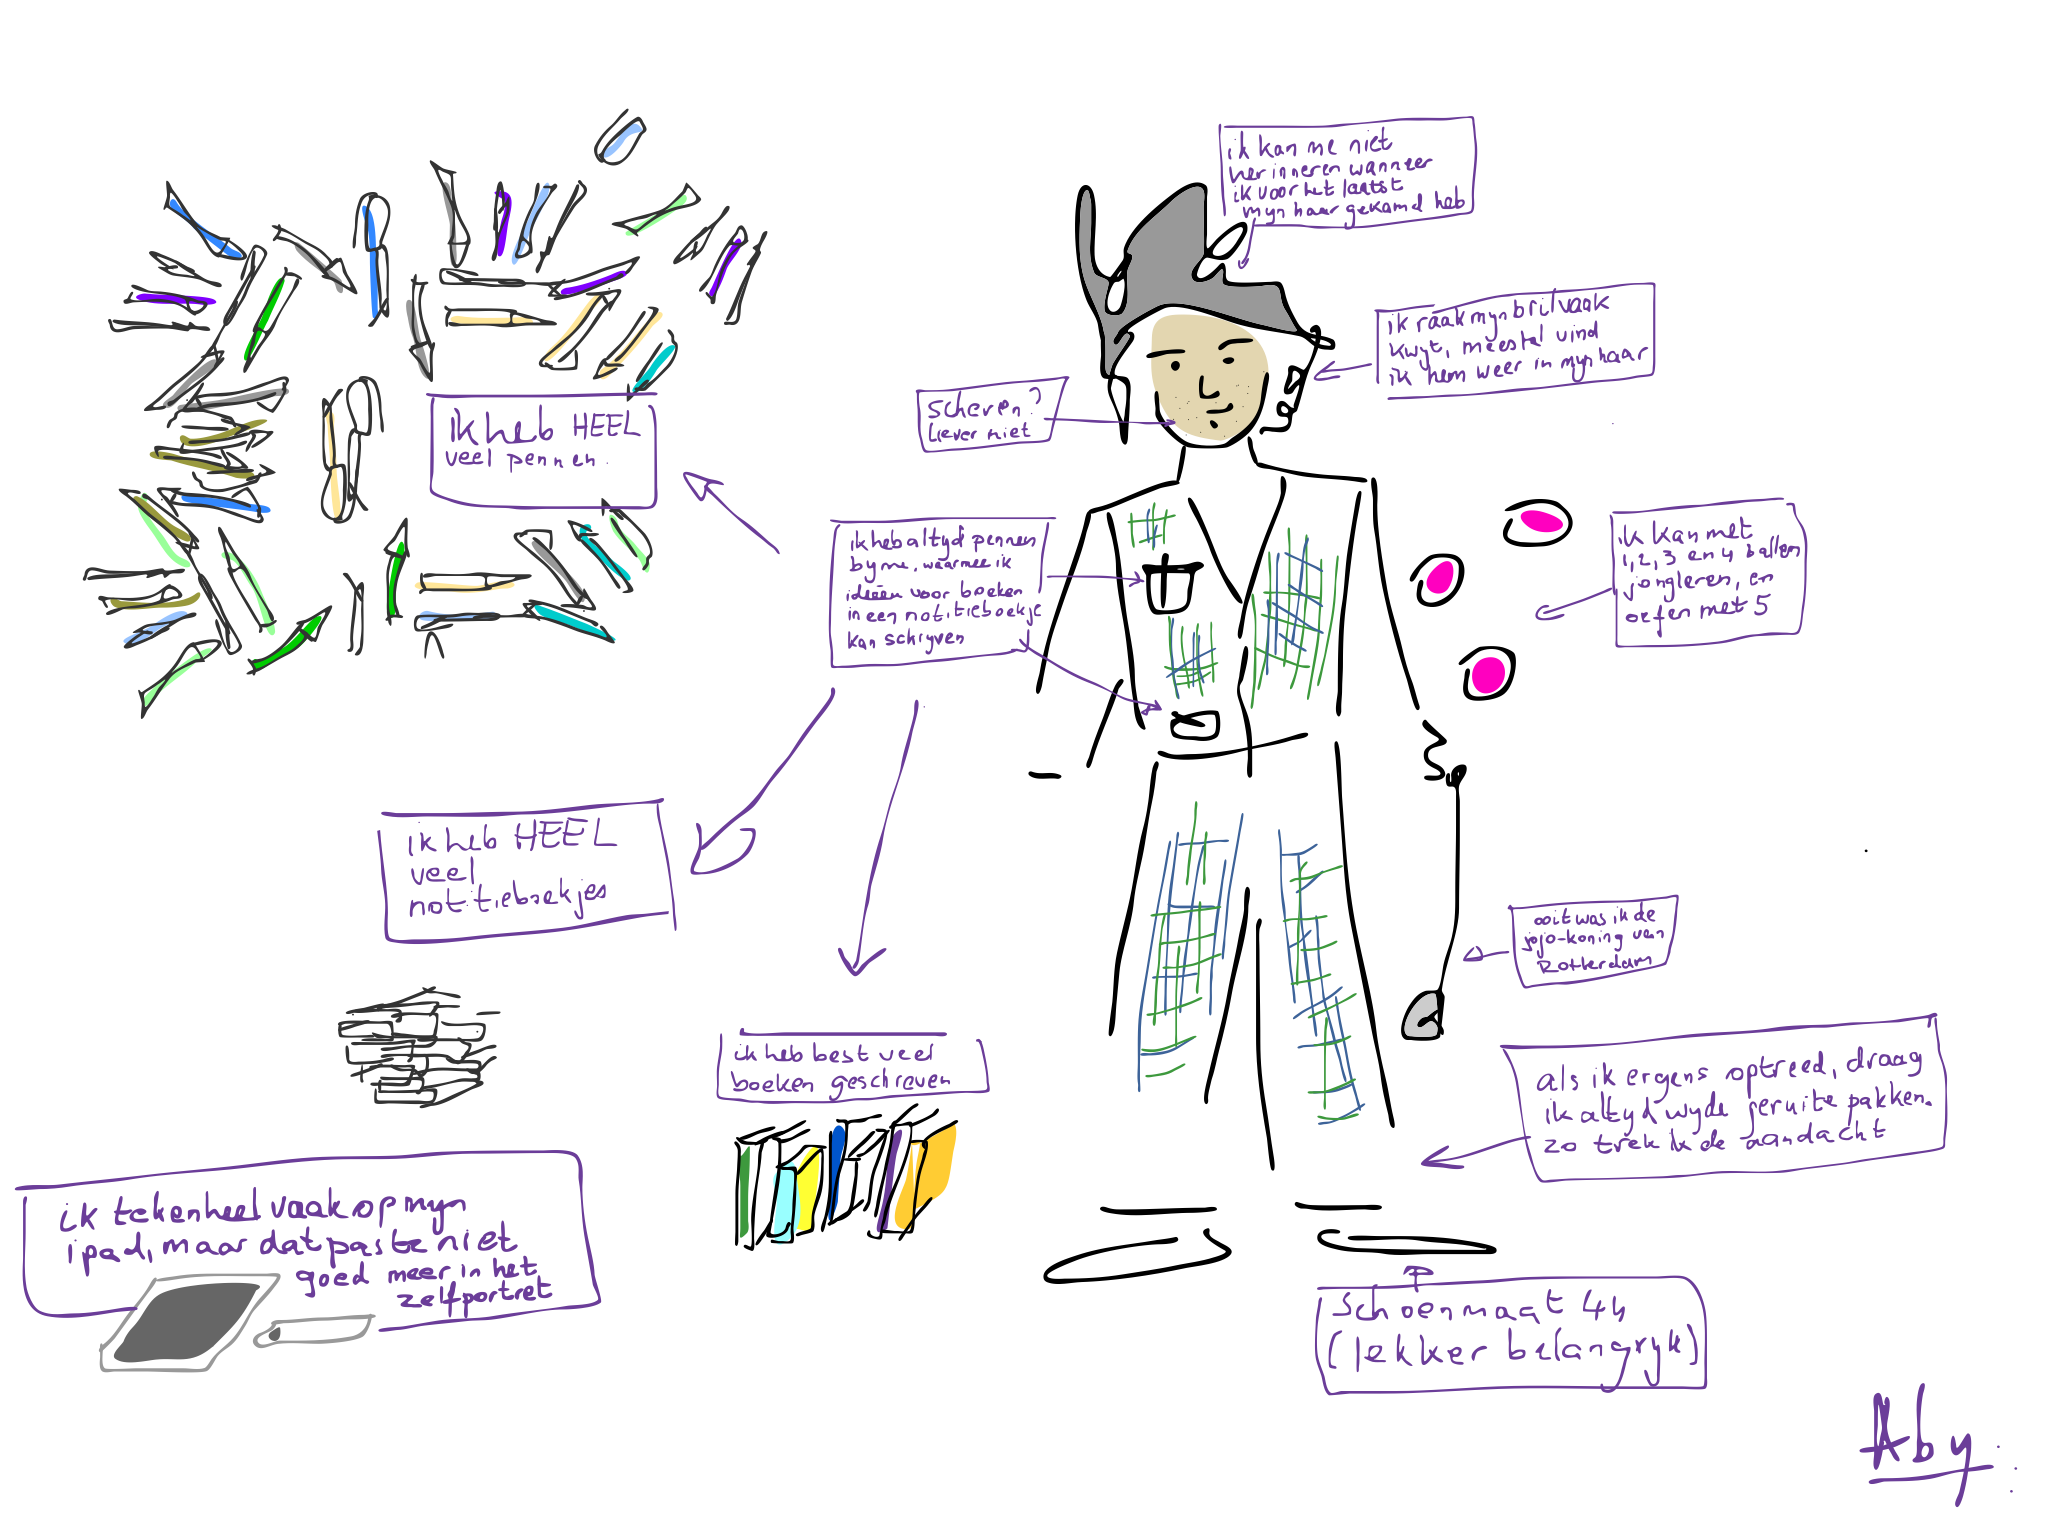 ik kan me niet
herinneren wanneer
ik voor het laatst
mijn haar gekamd heb
ik raak mijn bril vaak
kwijt, meestal vind
ik hem weer in mijn haar
Scheren?
Liever niet
ik heb HEEL
veel pennen.
ik heb altijd pennen
bij me, waarmee ik
ideeën voor boeken
in een notitieboekje
kan schrijven
ik kan met
1, 2, 3 en 4 ballen
jongleren, en
oefen met 5
ik heb HEEL
veel
notitieboekjes
ooit was ik de
jojo-koning van
Rotterdam
ik heb best veel
boeken geschreven
als ik ergens optreed, draag
ik altijd wijde geruite pakken.
zo trek ik de aandacht
ik teken heel vaak op mijn
ipad, maar dat paste niet
goed meer in het
zelfportret
Schoenmaat 44
(lekker belangrijk)
Aby